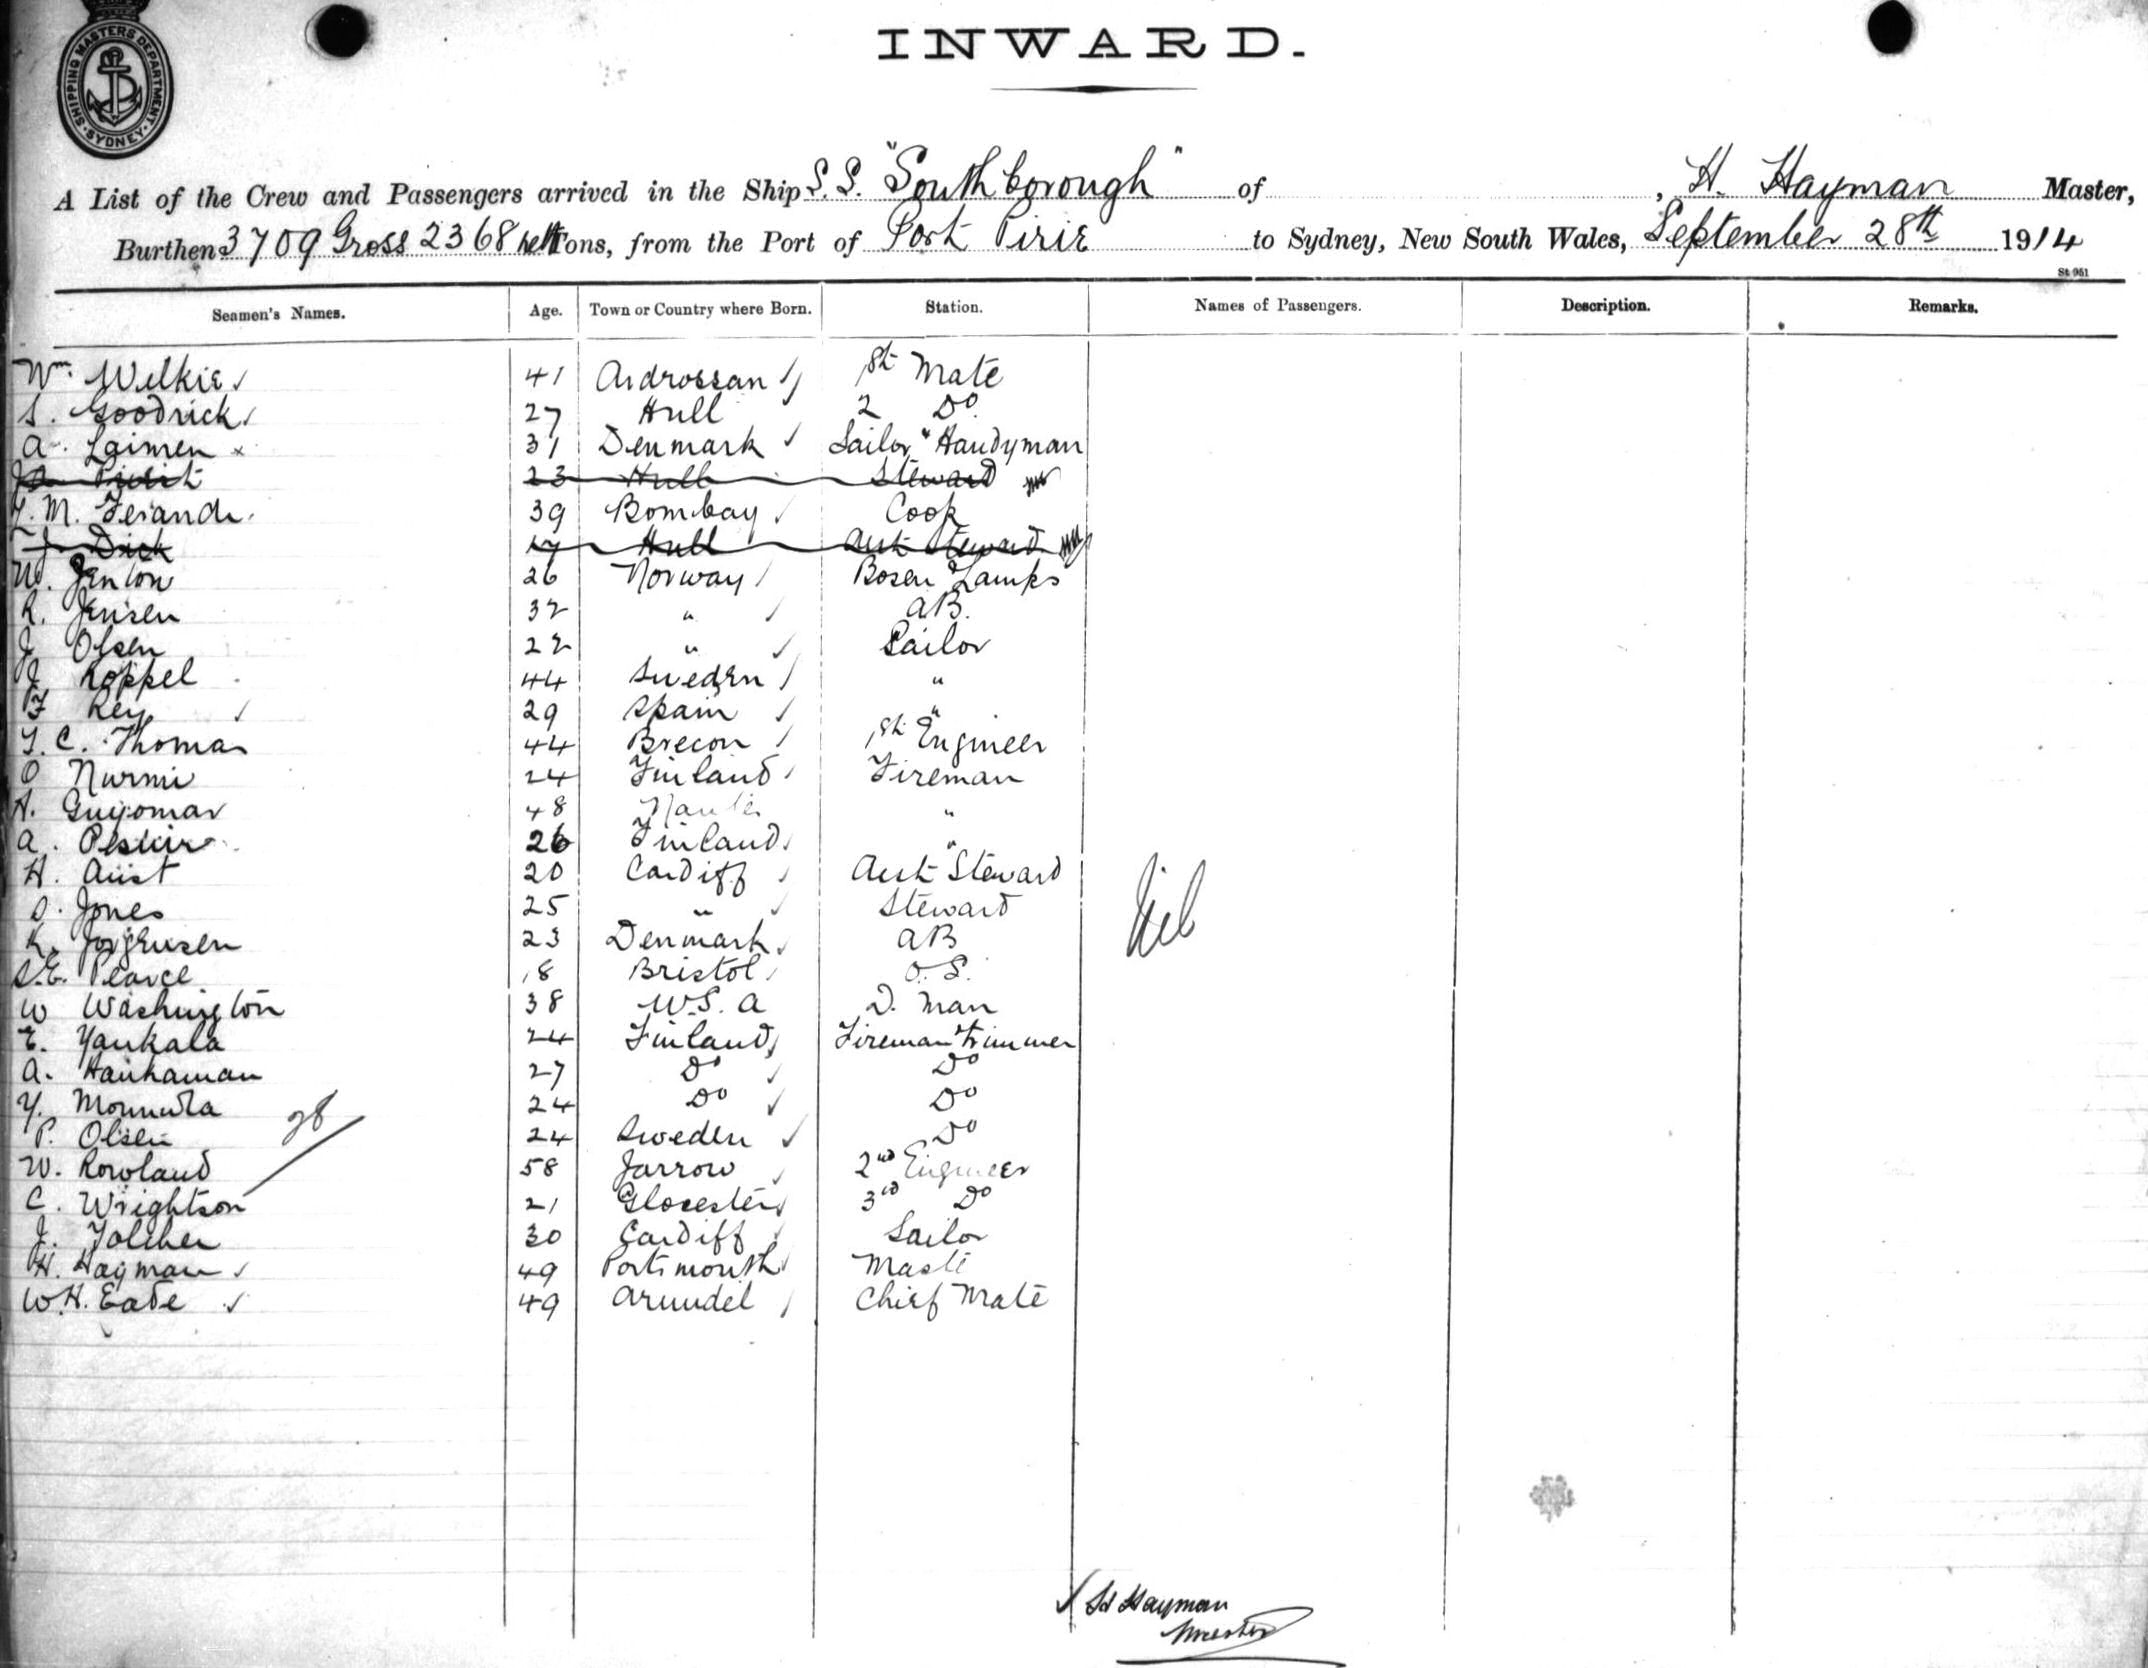 SHIPPING MASTERS DEPARTMENT · SYDNEY ·
INWARD.
A List of the Crew and Passengers arrived in the Ship S.S. "Southborough" of , H. Hayman Master,
Burthen 3709 Gross 2368 nett Tons, from the Port of Port Pirie to Sydney, New South Wales, September 28th 1914
St 961
Seamen's Names. Age. Town or Country where Born. Station. Names of Passengers. Description. Remarks.
Wm. Wilkie 41 Ardrossan 1st Mate
S. Goodrick 27 Hull 2 Do
A. Laimen 31 Denmark Sailor "Handyman
23 Hull Steward
M. 39 Bombay Cook
J. Dick 17 Hull Asst Steward
W. Jenton 26 Norway Bosen Lamps
R. Jensen 32 " AB.
J Olsen 22 " Sailor
J Koppel 44 Sweden "
F Rey 29 Spain "
T. C. Thomas 44 Brecon 1st Engineer
O Nurmi 24 Finland Fireman
H. Guyomar 48 Nantes "
A. 26 Finland "
H. Aust 20 Cardiff Asst Steward
D. Jones 25 " Steward
K. Jorgensen 23 Denmark AB
S.E. Pearce 18 Bristol O.S.
W Washington 38 U.S.A D. Man
E. Yankala 24 Finland Fireman Trimmer
A. Hanhaman 27 Do Do
Y. 24 Do Do
P. Olsen 24 Sweden Do
28
W. Rowland 58 Jarrow 2nd Engineer
C. Wrightson 21 Glocester 3rd Do
J. Tolcher 30 Cardiff Sailor
H. Hayman 49 Portsmouth Master
W.H. Eade 49 Arundel Chief Mate
Nil
Hayman
Master